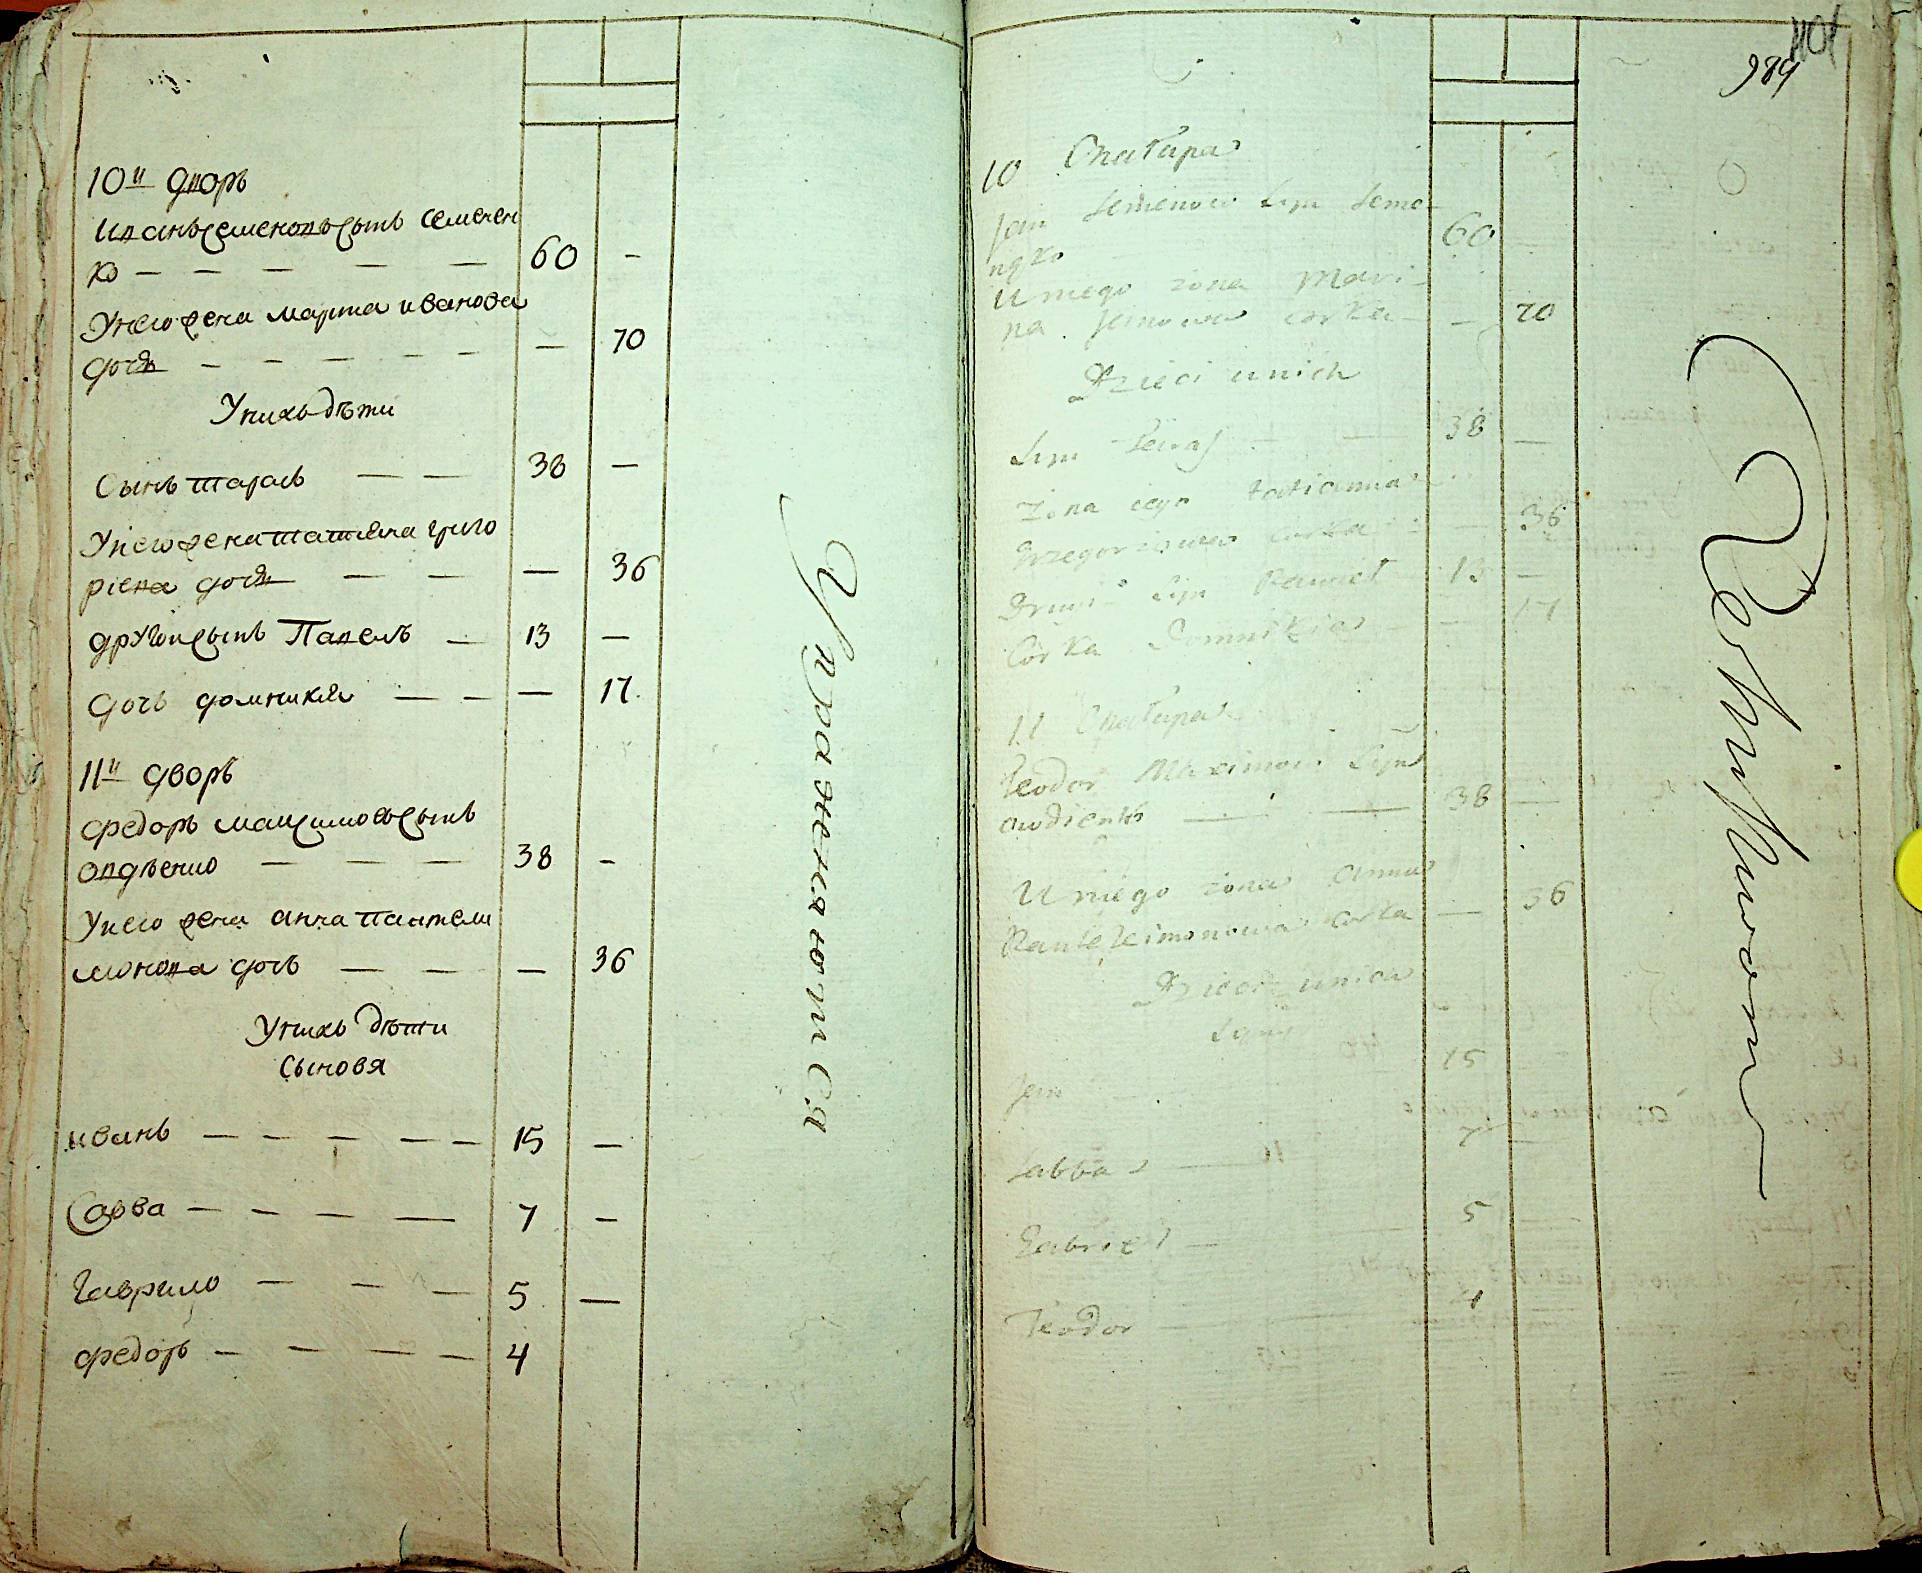 10й дворъ
Иванъ Семеновъ сынъ Семенен
ко — — — — — 60 -
У него жена Марта Иванова
дочь — — — — — — 70
У нихъ дѣти
Сынъ Тарасъ — — 38 —
У него жена Татіяна Григо
риева дочь — — — 36
другои сынъ Павелъ — 13 —
дочь домникия — — — 17
11й дворъ
Федоръ Максимовъ сынъ
Овдѣенко — — — 38 -
У него жена Анна Пантели
монова дочь — — — 36
У нихъ дѣти
Сыновя
иванъ — — — — — 15 —
Савва — — — — 7 —
Гаврило — — — 5 —
Федоръ — — — — 4
Упражняются
401
989
10 Chałupa
Jan Semenow Syn Seme-
nęko 60
U niego zona Mari-
na Janowa corka — — 70
Dzieci u nich
Syn Taras 38 —
Zona iego Tatianna
Grzegorzowa corka — 36
Drugi Syn Pawieł 13 —
Corka Domnikia — — 17
11 Chałupa
Teodor Maximow Syn
Owdienko — — 38 —
U niego zona Anna
Panteleimonowa corka — 36
Dzieci u nich
Syny
Jan 15
Sabba — 7
Gabriel — 5
Teodor — 4